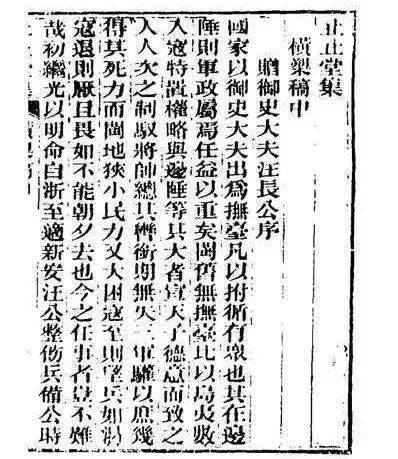 止止堂集
橫槊稿中
贈御史大夫汪長公序
國家以御史大夫出爲撫臺凡以拊循有眾也其在邊
陲則軍政屬焉任益以重矣閩舊無撫臺比以島夷數
入寇特置權略與邊陲等其大者宣天子德意而致之
人人次之制馭將帥總其轡銜期無失三軍驩以庶幾
得其死力而閩地狹小民力又大困寇至則望兵如渴
寇退則厭且畏如不能朝夕去也今之任事者豈不難
哉初繼光以明命自浙至適新安汪公整飭兵備公時